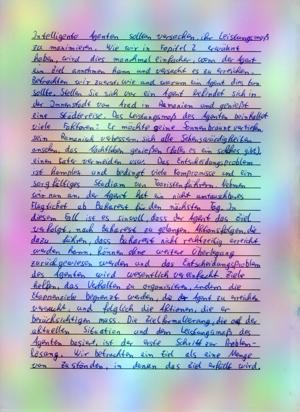 Intelligente Agenten sollen versuchen, ihr Leistungsmaß
zu maximieren. Wie wir in Kapitel 2 erwähnt
haben, wird dies manchmal einfacher, wenn der Agent
ein Ziel annehmen kann und versucht es zu erreichen.
Betrachten wir zuerst, wie und warum ein Agent dies tun
sollte. Stellen Sie sich vor ein Agent befindet sich in
der Innenstadt von Arad in Rumänien und genießt
eine Städtereise. Das Leistungsmaß des Agenten beinhaltet
viele Faktoren: Er möchte seine Sonnenbräune vertiefen
sein Rumänisch verbessern, sich alle Sehenswürdigkeiten
ansehen, das Nachtleben genießen (falls es ein solches gibt)
einen Kater vermeiden usw. Das Entscheidungsproblem
ist komplex und bedingt viele Kompromisse und ein
sorgfältiges Studium von Touristenführern. Nehmen
wir nun an, der Agent hat ein nicht umtauschbares
Flugticket ab Bukarest für den nächsten Tag. In
diesem Fall ist es sinnvoll, dass der Agent das Ziel
verfolgt, nach Bukarest zu gelangen. Aktionsfolgen, die
dazu führen, dass Bukarest nicht rechtzeitig erreicht
werden kann, können ohne weitere Überlegung
zurückgewiesen werden und das Entscheidungsproblem
des Agenten wird wesentlich vereinfacht. Ziele
helfen, das Verhalten zu organisieren, indem die
begrenzt werden, die der Agent zu erreichen
versucht, und folglich die Aktionen, die er
berücksichtigen muss. Die Zielformulierung, die auf der
aktuellen Situation und dem Leistungsmaß des
Agenten basiert, ist der erste Schritt zur Problem-
lösung. Wir betrachten ein Ziel als eine Menge
von Zuständen, in denen das Ziel erfüllt wird.